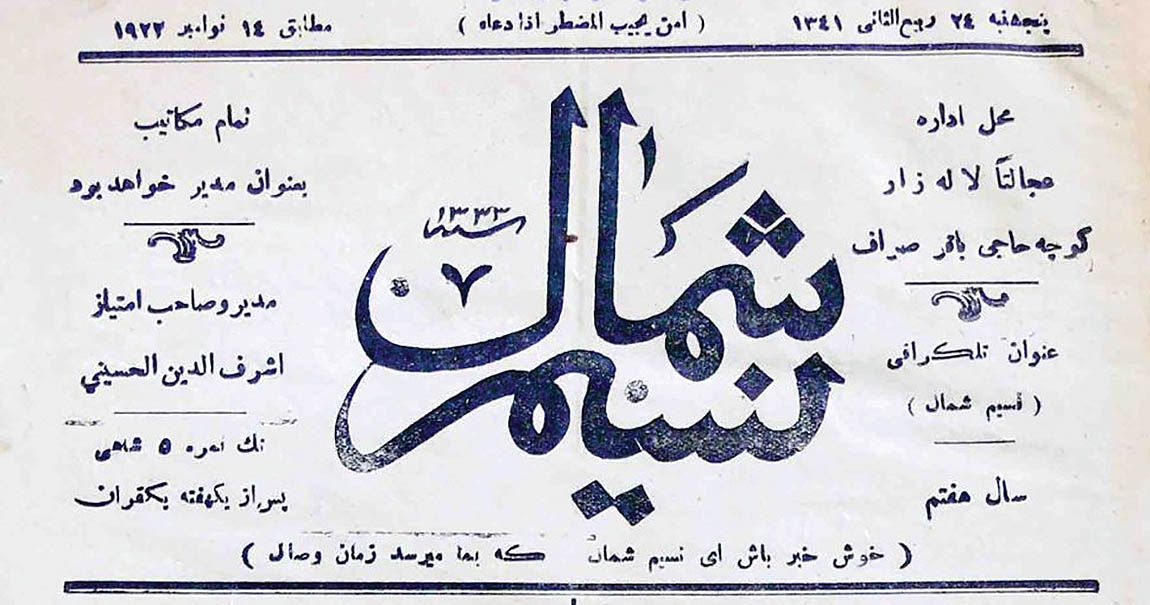 پنجشنبه ۲۴ ربیع الثانی ۱۳۴۱ ( امن یجیب المضطر اذا دعاه ) مطابق ۱۴ نوامبر ۱۹۲۲
محل اداره
عجالتاً لاله زار
کوچه حاجی باقر صراف
عنوان تلکرافی
( نسیم شمال )
سال هفتم
نسیم شمال
سنه ۱۳۳۳
۷
تمام مکاتیب
بعنوان مدیر خواهد بود
مدیر و صاحب امتیاز
اشرف الدین الحسیني
تك نمره ۵ شاهی
پس از یکهفته یکقران
( خوش خبر باش ای نسیم شمال که بما میرسد زمان وصال )